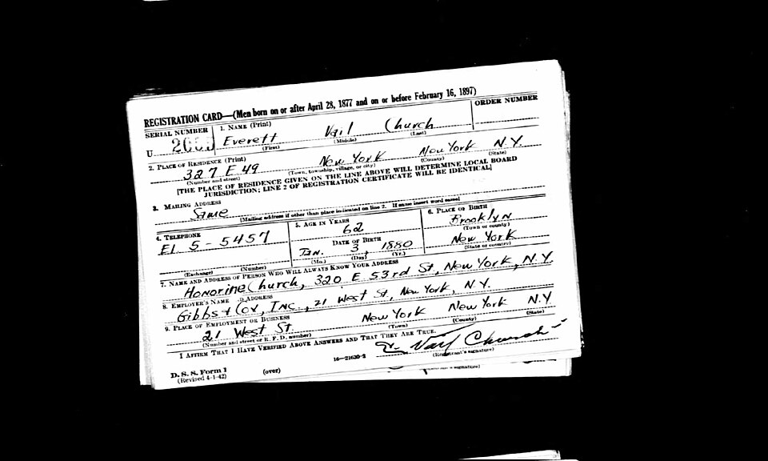 REGISTRATION CARD—(Men born on or after April 28, 1877 and on or before February 16, 1897)
SERIAL NUMBER 1. NAME (Print) ORDER NUMBER
U Everett Vail Church
(First) (Middle) (Last)
2. PLACE OF RESIDENCE (Print)
327 E 49 New York New York N.Y.
(Number and street) (Town, township, village, or city) (County) (State)
[THE PLACE OF RESIDENCE GIVEN ON THE LINE ABOVE WILL DETERMINE LOCAL BOARD
JURISDICTION; LINE 2 OF REGISTRATION CERTIFICATE WILL BE IDENTICAL]
3. MAILING ADDRESS
Same
(Mailing address if other than place indicated on line 2. If same insert word same)
4. TELEPHONE 5. AGE IN YEARS 6. PLACE OF BIRTH
El 5-5457 62 Brooklyn
(Town or county)
DATE OF BIRTH
Jan. 3 1880 New York
(Exchange) (Number) (Mo.) (Day) (Yr.) (State or country)
7. NAME AND ADDRESS OF PERSON WHO WILL ALWAYS KNOW YOUR ADDRESS
Honorine Church, 320 E 53rd St, New York, N.Y.
8. EMPLOYER'S NAME AND ADDRESS
Gibbs & Cox, Inc., 21 West St, New York, N.Y.
9. PLACE OF EMPLOYMENT OR BUSINESS
21 West St. New York New York N.Y
(Number and street or R. F. D. number) (Town) (County) (State)
I AFFIRM THAT I HAVE VERIFIED ABOVE ANSWERS AND THAT THEY ARE TRUE.
E. Vail Church
D. S. S. Form 1 16—21630-2 (Registrant's signature)
(Revised 4-1-42) (over)